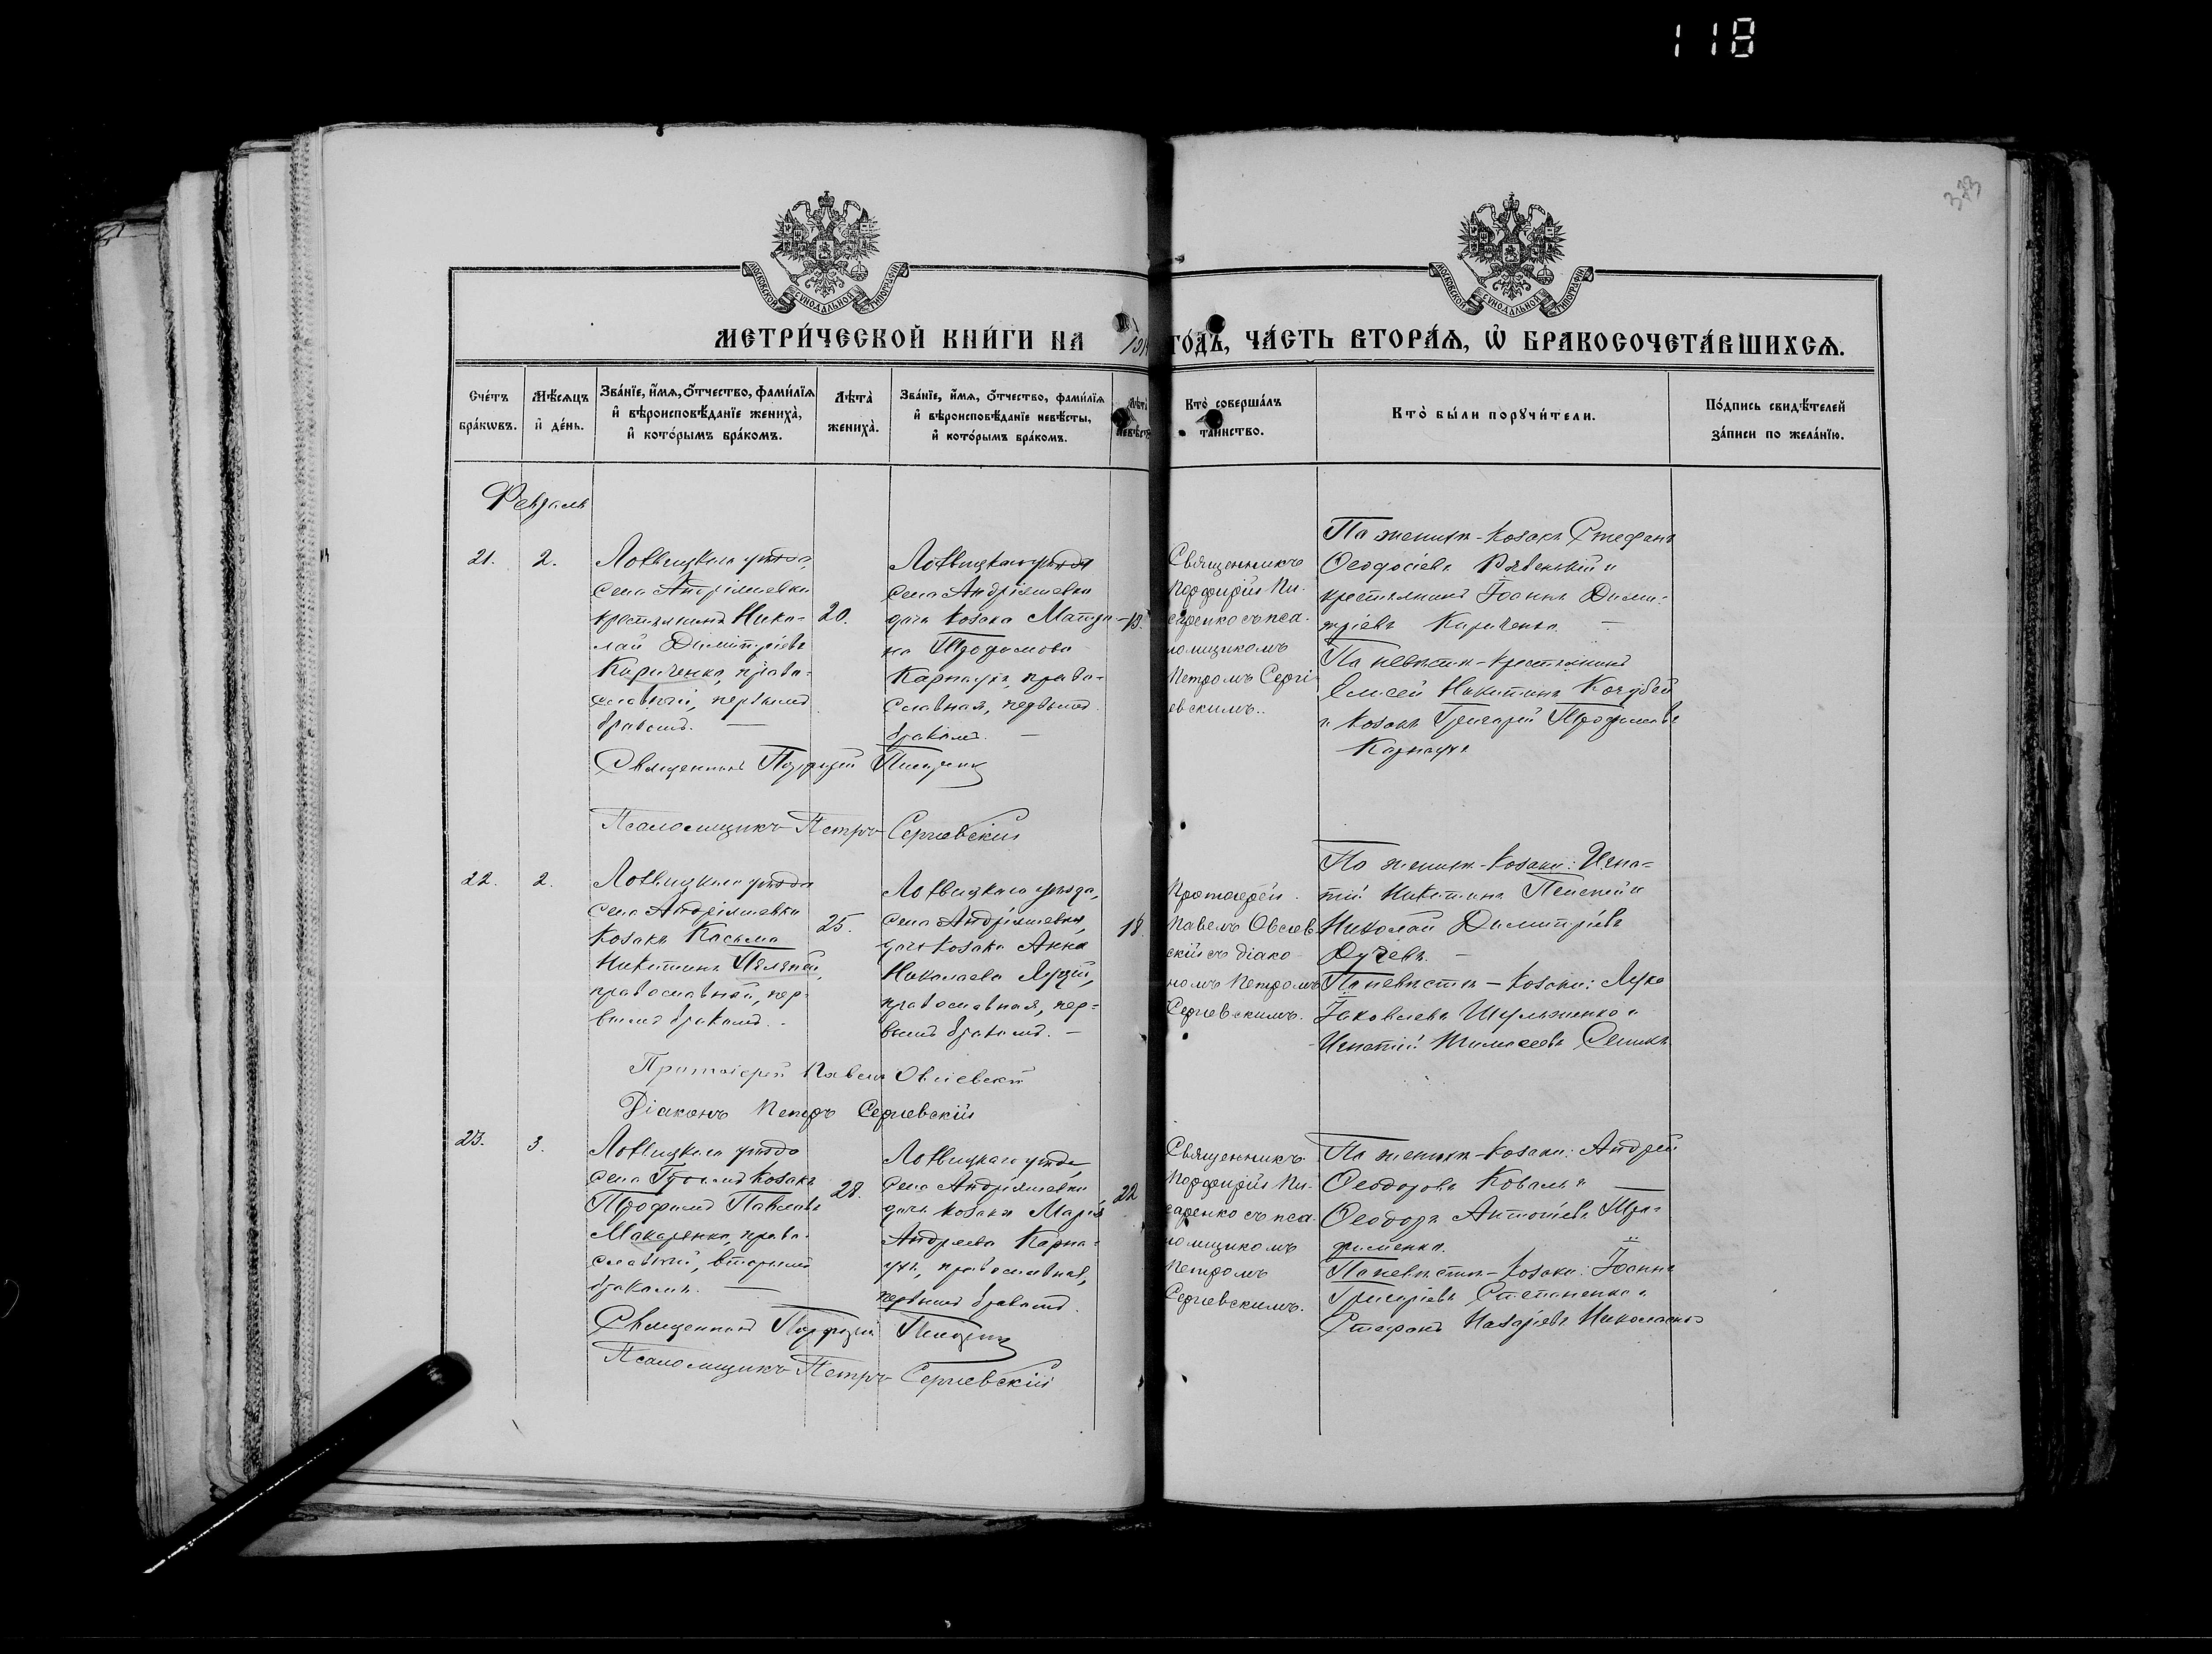 118
333
МОСКОВСКОЙ СУНОДАЛЬНОЙ ТИПОГРАФІИ
МОСКОВСКОЙ СУНОДАЛЬНОЙ ТИПОГРАФІИ
МЕТРИ́ЧЕСКОЙ КНИ́ГИ НА
ГО́ДЪ, ЧА́СТЬ ВТОРА́Ѧ, Ѡ҆ БРАКОСОЧЕТА́ВШИХСѦ.
Сче́тъ бра́кѡвъ.
Мѣ́сѧцъ и҆ де́нь.
Зва́нїе, и҆́мѧ, ѻ҆́тчество, фами́лїѧ
и҆ вѣроисповѣ́данїе жениха̀,
и҆ кото́рымъ бра́комъ.
Лѣ́та̀ жениха̀.
Зва́нїе, и҆́мѧ, ѻ҆́тчество, фами́лїѧ
и҆ вѣроисповѣ́данїе невѣ́сты,
и҆ кото́рымъ бра́комъ.
Лѣта̀ невѣ́сты
Кто̀ соверша́лъ
та́инство.
Кто̀ бы́ли порꙋчи́тели.
По́дпись свидѣ́телей
за́писи по жела́нїю.
Февраль
21.
2.
Лохвицкаго уѣзда,
села Андріяшевки
крестьянинъ Нико-
лай Димитріевъ
Кириченко, право-
славный, первымъ
бракомъ. —
20.
Лохвицкаго уѣзда
села Андріяшевки
дочь козака Матро-
на Трофимова
Карнаухъ, право-
славная, первымъ
бракомъ. —
19.
Священникъ
Порфирій Пи-
саренко съ пса-
ломщикомъ
Петромъ Сергі-
евскимъ.
По женихѣ - козакъ Стефанъ
Ѳеодосіевъ Рябенькій и
крестьянинъ Іоаннъ Дими-
тріевъ Кириченко. —
По невѣстѣ - крестьянинъ
Елисей Никитинъ Кочубей
и козакъ Григорій Трофимовъ
Карнаухъ
Священникъ Порфирій Писаренко
Псаломщикъ Петръ Сергіевскій
22.
2.
Лохвицкаго уѣзда
села Андріяшевки
козакъ Косьма
Никитинъ
православный, пер-
вымъ бракомъ. -
25.
Лохвицкаго уѣзда,
села Андріяшевки,
дочь козака Анна
Николаева
православная, пер-
вымъ бракомъ. —
18.
Протоіерей
Павелъ Овсіев-
скій съ діако-
номъ Петромъ
Сергіевскимъ.
По женихѣ - козаки: Игна-
тій Никитинъ и
Николай Димитріевъ
По невѣстѣ - козаки: Лука
Іаковлевъ Шульженко и
Игнатій Тимоѳеевъ Сеникъ
Протоіерей Павелъ Овсіевскій
Діаконъ Петръ Сергіевскій
23.
3.
Лохвицкаго уѣзда
села козакъ
Трофимъ Павловъ
Макаренко, право-
славный, вторымъ
бракомъ. —
28.
Лохвицкаго уѣзда,
села Андріяшевки
дочь козака Марія
Андреева Карна-
ухъ, православная,
первымъ бракомъ.
22
Священникъ
Порфирій Пи-
саренко съ пса-
ломщикомъ
Петромъ
Сергіевскимъ.
По женихѣ - козаки: Андрей
Ѳеодоровъ Коваль и
Ѳеодоръ Антоніевъ Тро-
фименко.
По невѣстѣ - козаки: Іоаннъ
Григоріевъ Степаненко и
Стефанъ Назаріевъ Николаенко
Священникъ Порфирій Писаренко
Псаломщикъ Петръ Сергіевскій